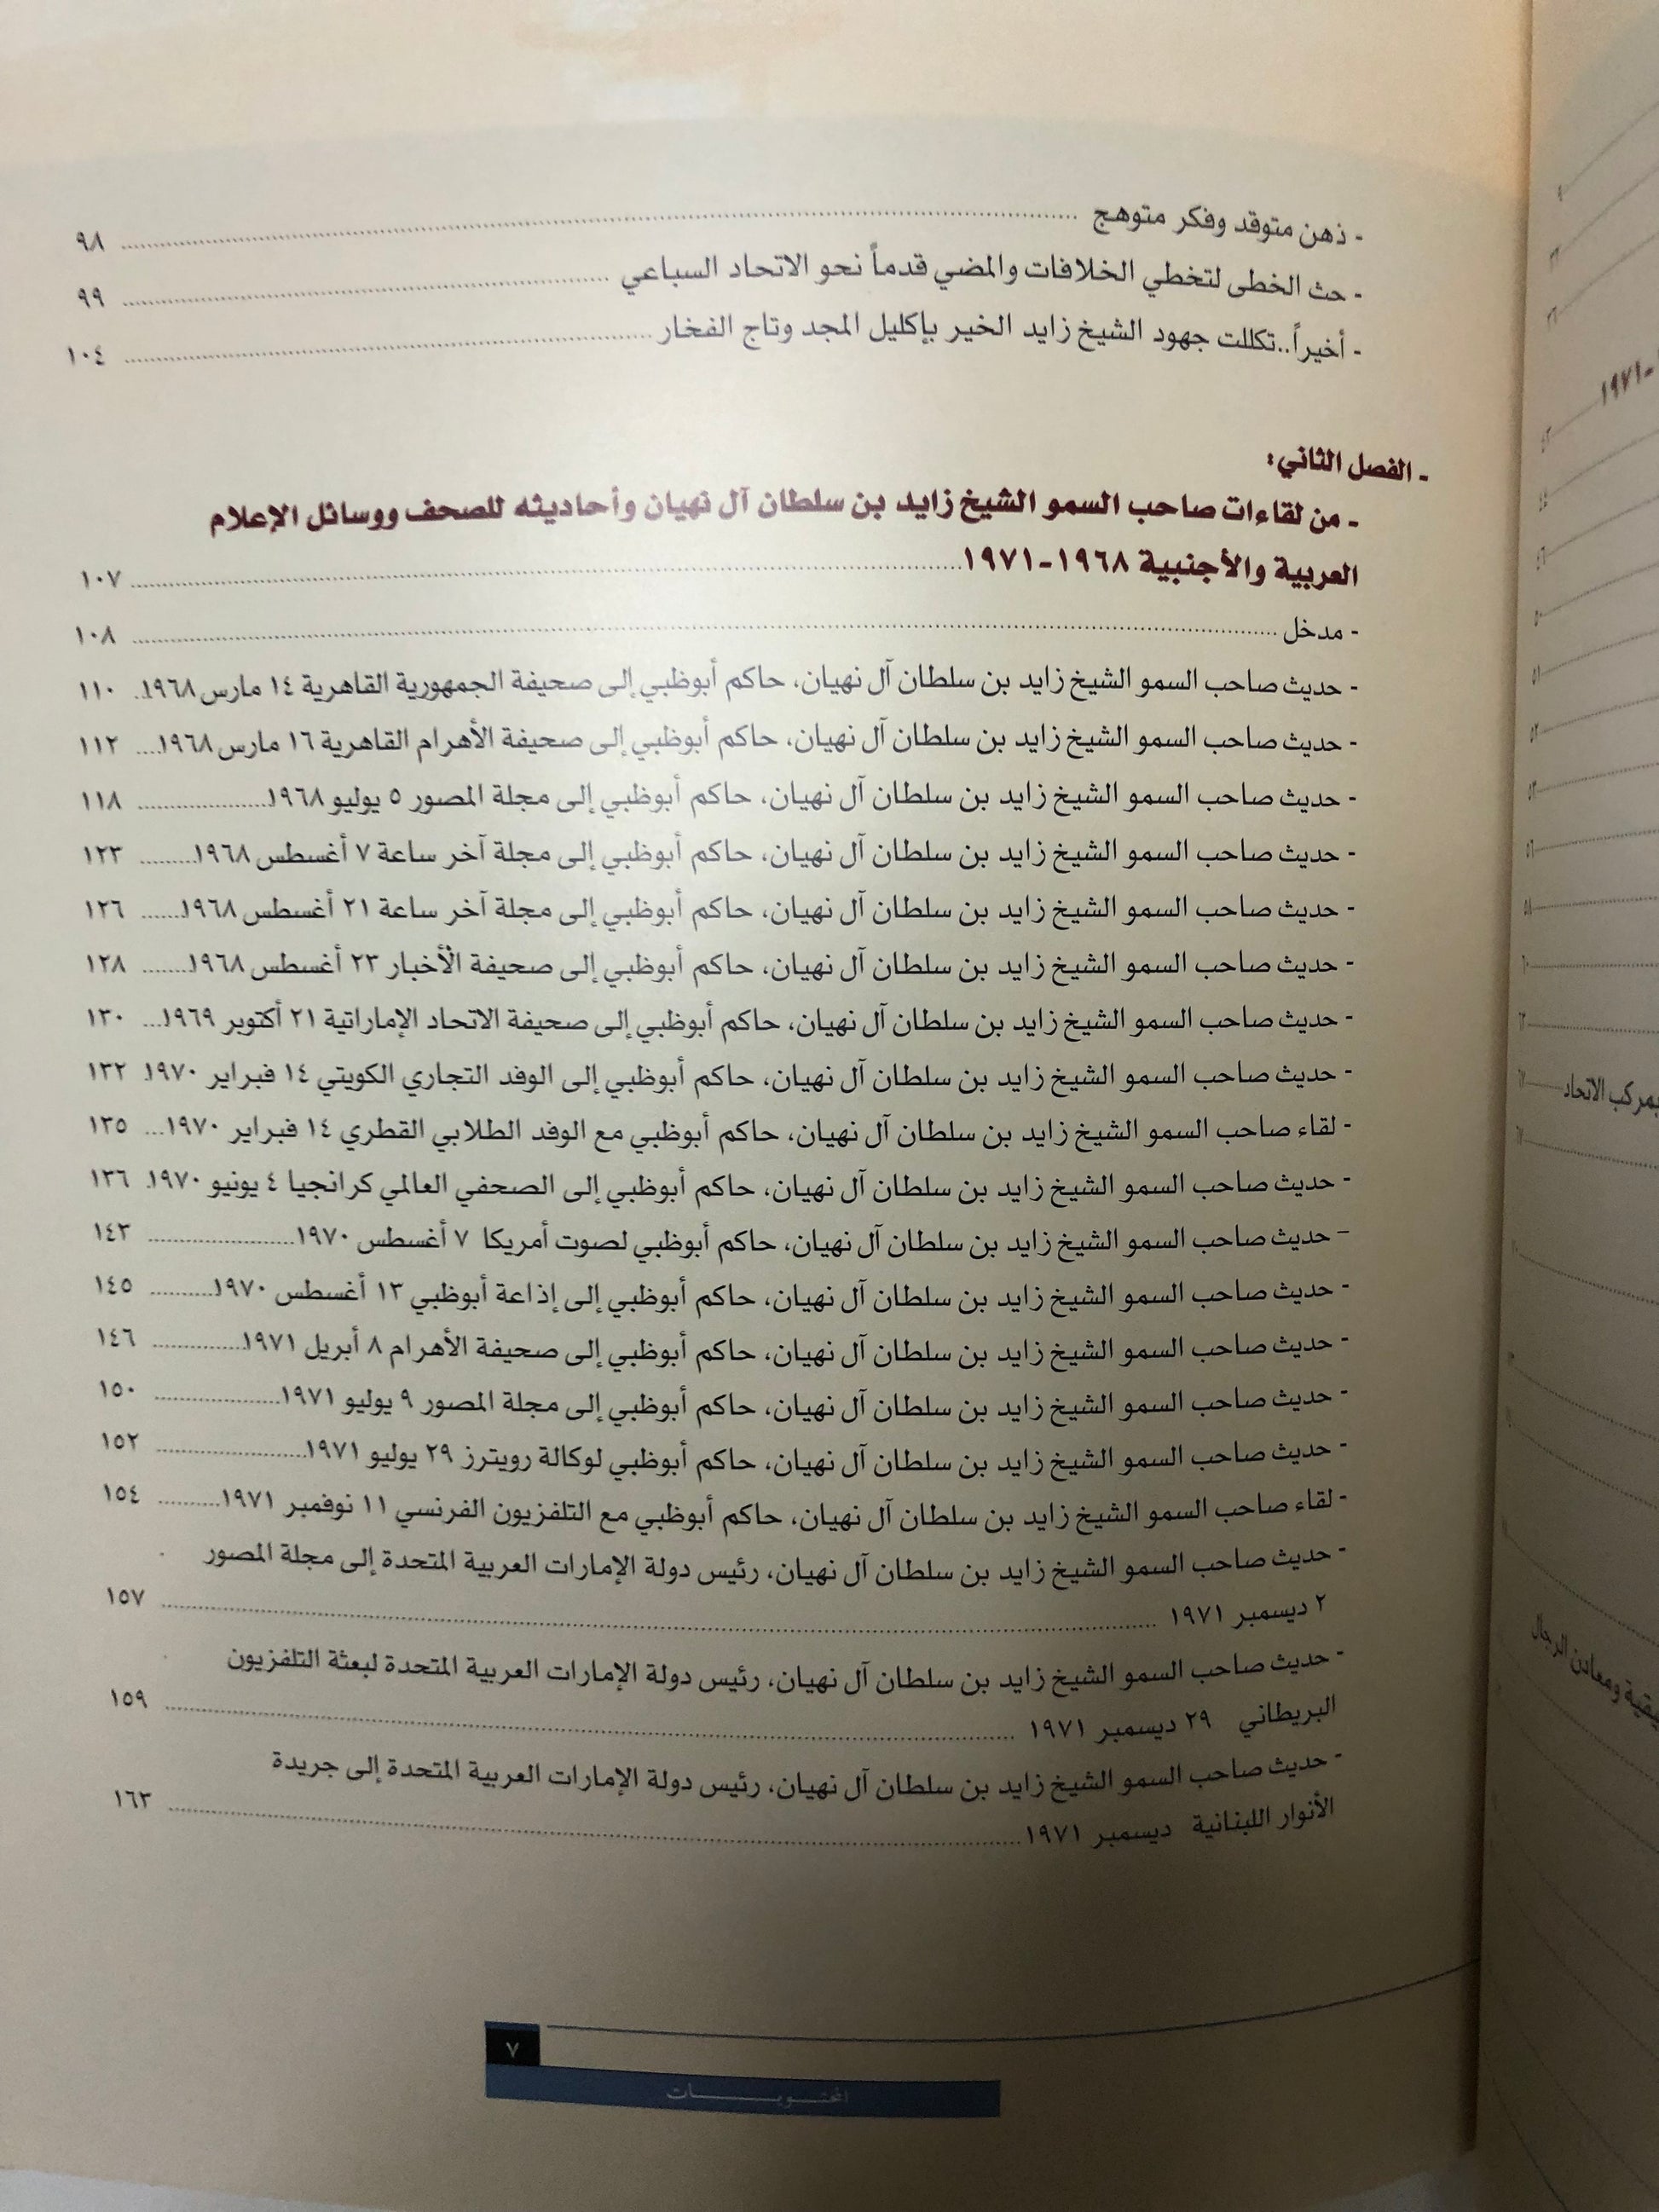 - ذهن متوقد وفكر متوهج ........ ٩٨
- حث الخطى لتخطي الخلافات والمضي قدماً نحو الاتحاد السباعي ........ ٩٩
- أخيراً..تكللت جهود الشيخ زايد الخير بإكليل المجد وتاج الفخار ........ ١٠٤
- الفصل الثاني:
- من لقاءات صاحب السمو الشيخ زايد بن سلطان آل نهيان وأحاديثه للصحف ووسائل الإعلام
العربية والأجنبية ١٩٦٨-١٩٧١ ........ ١٠٧
- مدخل ........ ١٠٨
- حديث صاحب السمو الشيخ زايد بن سلطان آل نهيان، حاكم أبوظبي إلى صحيفة الجمهورية القاهرية ١٤ مارس ١٩٦٨. ١١٠
- حديث صاحب السمو الشيخ زايد بن سلطان آل نهيان، حاكم أبوظبي إلى صحيفة الأهرام القاهرية ١٦ مارس ١٩٦٨.... ١١٢
- حديث صاحب السمو الشيخ زايد بن سلطان آل نهيان، حاكم أبوظبي إلى مجلة المصور ٥ يوليو ١٩٦٨ ........ ١١٨
- حديث صاحب السمو الشيخ زايد بن سلطان آل نهيان، حاكم أبوظبي إلى مجلة آخر ساعة ٧ أغسطس ١٩٦٨ ........ ١٢٣
- حديث صاحب السمو الشيخ زايد بن سلطان آل نهيان، حاكم أبوظبي إلى مجلة آخر ساعة ٢١ أغسطس ١٩٦٨ ........ ١٢٦
- حديث صاحب السمو الشيخ زايد بن سلطان آل نهيان، حاكم أبوظبي إلى صحيفة الأخبار ٢٣ أغسطس ١٩٦٨ ........ ١٢٨
- حديث صاحب السمو الشيخ زايد بن سلطان آل نهيان، حاكم أبوظبي إلى صحيفة الاتحاد الإماراتية ٢١ أكتوبر ١٩٦٩.... ١٣٠
- حديث صاحب السمو الشيخ زايد بن سلطان آل نهيان، حاكم أبوظبي إلى الوفد التجاري الكويتي ١٤ فبراير ١٩٧٠. ١٣٢
- لقاء صاحب السمو الشيخ زايد بن سلطان آل نهيان، حاكم أبوظبي مع الوفد الطلابي القطري ١٤ فبراير ١٩٧٠... ١٣٥
- حديث صاحب السمو الشيخ زايد بن سلطان آل نهيان، حاكم أبوظبي إلى الصحفي العالمي كرانجيا ٤ يونيو ١٩٧٠. ١٣٦
- حديث صاحب السمو الشيخ زايد بن سلطان آل نهيان، حاكم أبوظبي لصوت أمريكا ٧ أغسطس ١٩٧٠ ........ ١٤٣
- حديث صاحب السمو الشيخ زايد بن سلطان آل نهيان، حاكم أبوظبي إلى إذاعة أبوظبي ١٣ أغسطس ١٩٧٠ ........ ١٤٥
- حديث صاحب السمو الشيخ زايد بن سلطان آل نهيان، حاكم أبوظبي إلى صحيفة الأهرام ٨ أبريل ١٩٧١ ........ ١٤٦
- حديث صاحب السمو الشيخ زايد بن سلطان آل نهيان، حاكم أبوظبي إلى مجلة المصور ٩ يوليو ١٩٧١ ........ ١٥٠
- حديث صاحب السمو الشيخ زايد بن سلطان آل نهيان، حاكم أبوظبي لوكالة رويترز ٢٩ يوليو ١٩٧١ ........ ١٥٢
- لقاء صاحب السمو الشيخ زايد بن سلطان آل نهيان، حاكم أبوظبي مع التلفزيون الفرنسي ١١ نوفمبر ١٩٧١ ........ ١٥٤
- حديث صاحب السمو الشيخ زايد بن سلطان آل نهيان، رئيس دولة الإمارات العربية المتحدة إلى مجلة المصور
٢ ديسمبر ١٩٧١ ........ ١٥٧
- حديث صاحب السمو الشيخ زايد بن سلطان آل نهيان، رئيس دولة الإمارات العربية المتحدة لبعثة التلفزيون
البريطاني ٢٩ ديسمبر ١٩٧١ ........ ١٥٩
- حديث صاحب السمو الشيخ زايد بن سلطان آل نهيان، رئيس دولة الإمارات العربية المتحدة إلى جريدة
الأنوار اللبنانية ديسمبر ١٩٧١ ........ ١٦٣
٧
المحتويات
-١٩٧١
بمركب الاتحاد
ومعادن الرجال